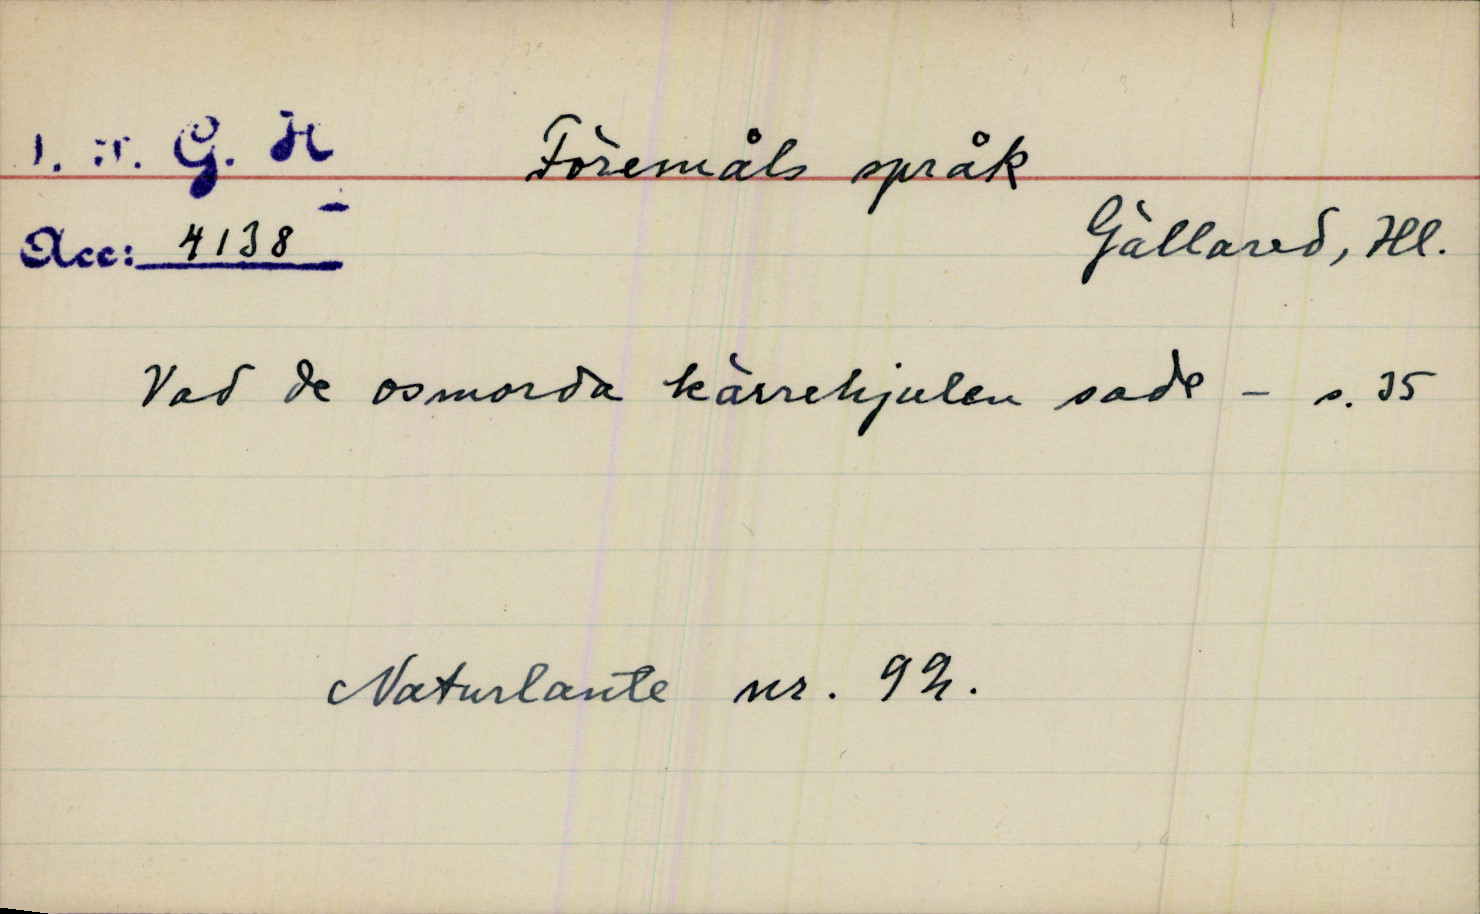 I. F. G. H
Föremåls språk
Acc: 4138
Gällared, Hl.
Vad de osmorda kärrehjulen sade - s. 35
Naturlante nr. 92.